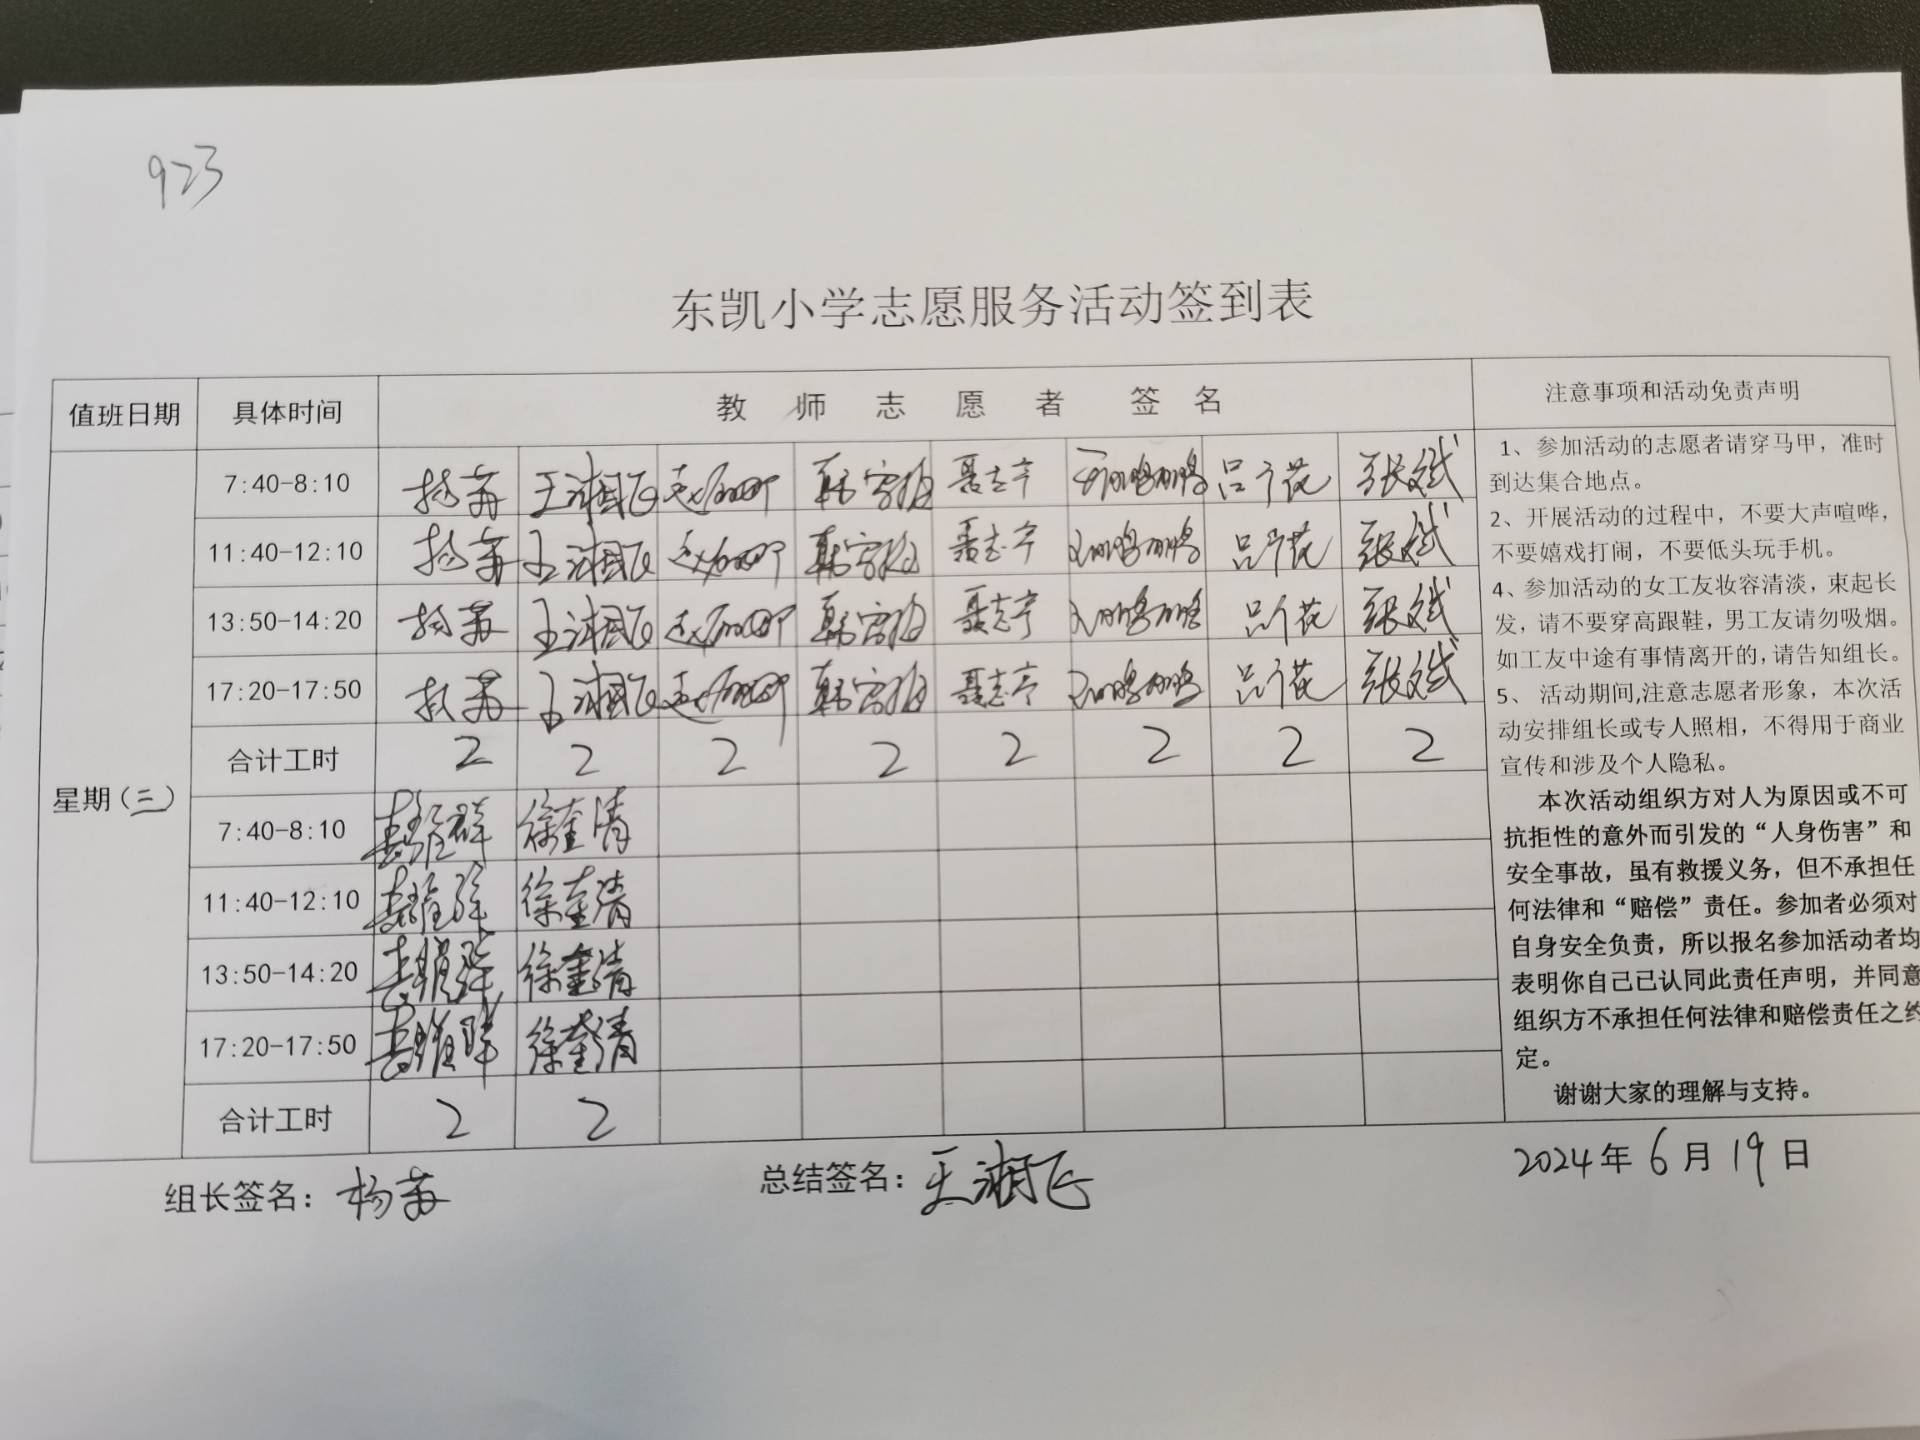 923
东凯小学志愿服务活动签到表
值班日期 具体时间 教师志愿者 签名 注意事项和活动免责声明
7:40-8:10 杨苗 王湘飞 聂志宁 吕广花 张斌
11:40-12:10 杨苗 王湘飞 聂志宁 吕广花 张斌
13:50-14:20 杨苗 王湘飞 聂志宁 吕广花 张斌
17:20-17:50 杨苗 王湘飞 聂志宁 吕广花 张斌
合计工时 2 2 2 2 2 2 2 2
星期(三)
7:40-8:10 徐奎清
11:40-12:10 徐奎清
13:50-14:20 徐奎清
17:20-17:50 徐奎清
合计工时 2 2
1、参加活动的志愿者请穿马甲，准时
到达集合地点。
2、开展活动的过程中，不要大声喧哗，
不要嬉戏打闹，不要低头玩手机。
4、参加活动的女工友妆容清淡，束起长
发，请不要穿高跟鞋，男工友请勿吸烟。
如工友中途有事情离开的，请告知组长。
5、活动期间,注意志愿者形象，本次活
动安排组长或专人照相，不得用于商业
宣传和涉及个人隐私。
本次活动组织方对人为原因或不可
抗拒性的意外而引发的“人身伤害”和
安全事故，虽有救援义务，但不承担任
何法律和“赔偿”责任。参加者必须对
自身安全负责，所以报名参加活动者均
表明你自己已认同此责任声明，并同意
组织方不承担任何法律和赔偿责任之约
定。
谢谢大家的理解与支持。
组长签名：杨苗 总结签名：王湘飞 2024年6月19日